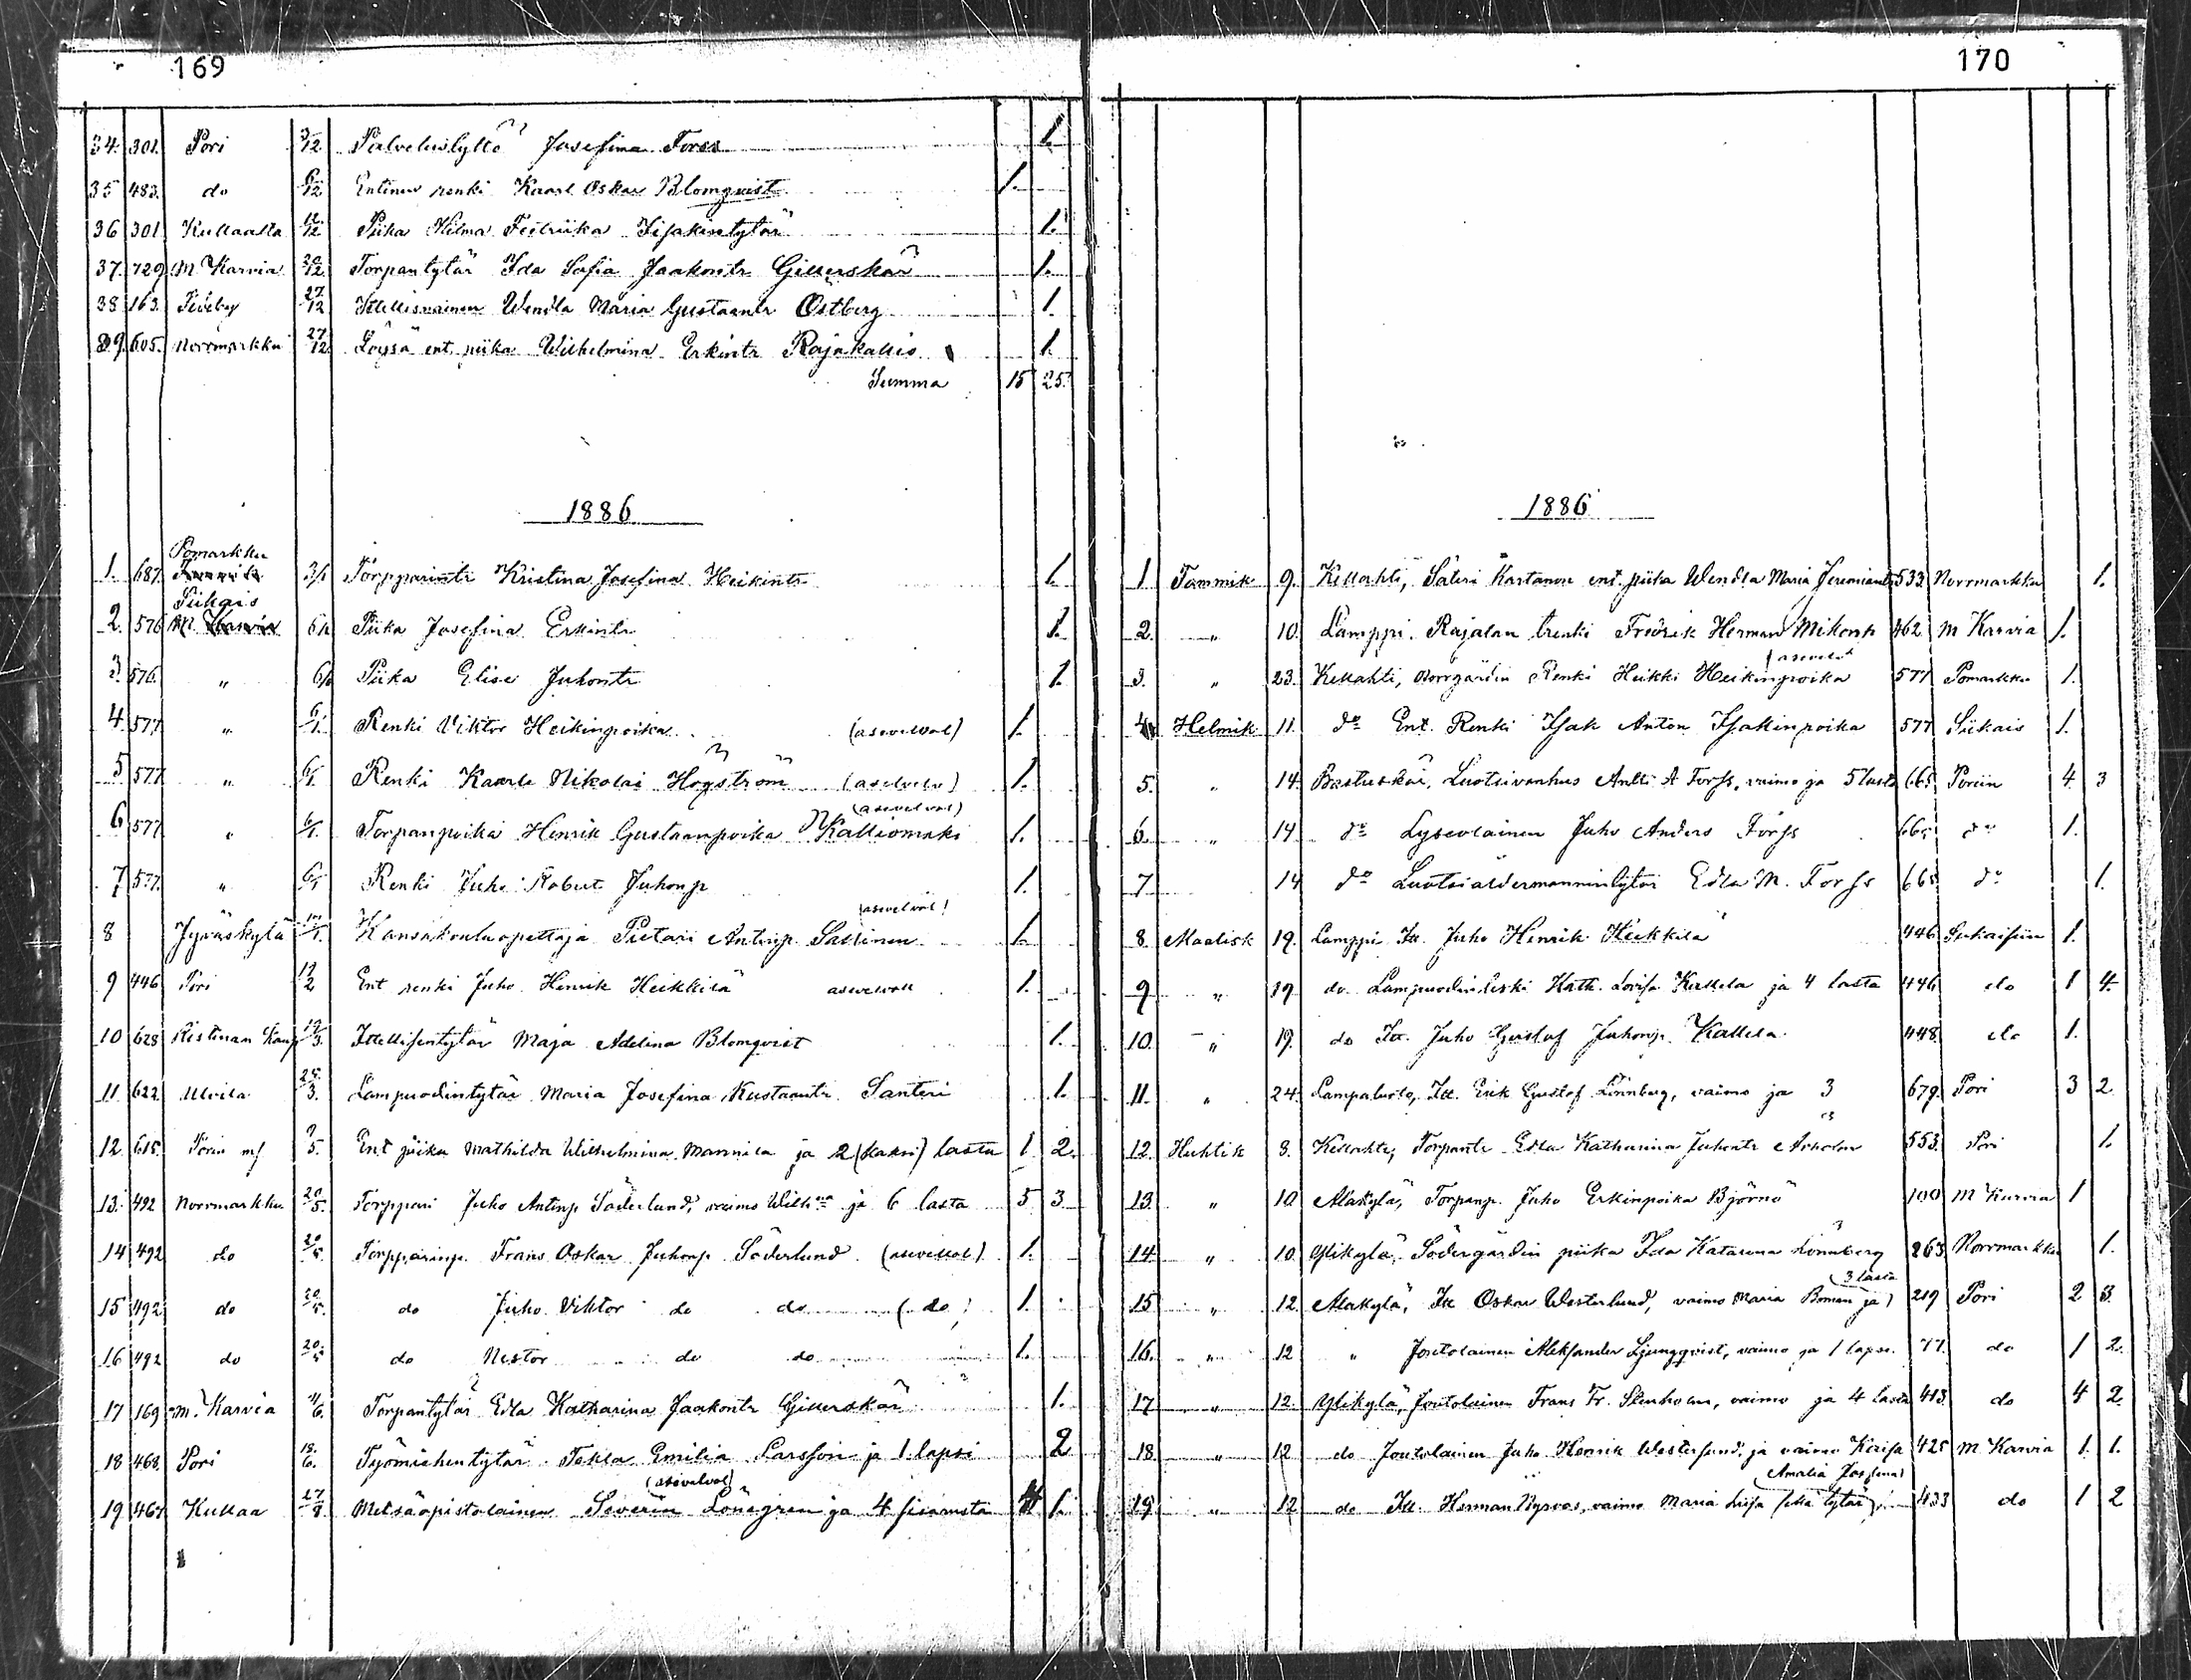 169
34. 301. Pori 3/12 Palvelustyttö Josefina Forss 1.
35 483. do 6/12 Entinen renki Kaarl Oskar Blomqvist 1.
36 301 Kullaalta 12/12 Piika Hilma Fedriika Iisakintytär 1.
37. 729 M. Karvia 20/12 Torpantytär Ida Sofia Jaakontr Gillerskär 1.
38 163. 27/12 Itellisnainen Wendla Maria Gustaantr Östberg 1.
39. 605. Norrmarkku 27/12 Löysä ent. piika Wilhelmina Erkintr Rajakallio 1.
Summa 15 25.
1886
Pomarkku
1. 687. 3/1 Torpparintr Kristina Josefina Heikintr 1.
Siikais
2. 576 M. Karvia 6/1 Piika Josefina Erkintr 1.
3. 576. " 6/1 Piika Elise Juhontr 1.
4. 577. " 6/1. Renki Viktor Heikinpoika (asevelvol) 1.
5 577. " 6/1 Renki Kaarle Nikolai Högström (asevelv) 1.
(asevelvol)
6 577 " 6/1. Torpanpoika Henrik Gustaanpoika Kalliomäki 1.
7 577. " 6/1 Renki Juho Robert Juhonp 1.
(asevelvol)
8 Jyväskylä Kansakouluopettaja Pietari Antinp. Sallinen 1.
9 446 Pori 17/2 Ent renki Juho Henrik Heikkilä asevelvoll 1.
10 628 Kristinan kaup 17/3. Itellisentytär Maja Adelina Blomqvist 1.
11 622. Ulvila 25/3. Lampuodintytär Maria Josefina Kustaantr Santeri 1.
12. 615. Porin m/ 9/5. Ent piika Mathilda Wilhelmina Mannila ja 2 (kaksi) lasta 1 2.
13. 492 Norrmarkku 20/5. Torppari Juho Antinp Söderlund, vaimo Wilh:na ja 6 lasta 5 3
14 492 do 20/5. Torpparinp. Frans Oskar Juhonp Söderlund (asevelvol) 1.
15 492 do 20/5. do Juho Viktor do do (do) 1.
16 492 do 20/5 do Nestor do do 1.
17 169 M. Karvia 11/6. Torpantytär Edla Katharina Jaakontr Gillerskär 1.
18 468 Pori 18/6. Työmiehentytär Tekla Emilia Larsson ja 1 lapsi 2
(asevelvol)
19 467 Kullaa 27/8 Metsäopistolainen Severin Lönegren ja 4 sisarusta 4 1.
170
1886
1. Tammik 9. Kellahti, Säteri Kartanon ent. piika Wendla Maria Jeremiantr 533 Norrmarkku 1.
2. " 10. Lamppi. Rajalan trenki Fredrik Herman Mikonp 462 M Karvia 1.
(asevelv)
3. " 23. Kellahti, Norrgårdin Renki Heikki Heikinpoika 577 Pomarkku 1.
4 Helmik 11. do Ent. Renki Isak Anton Isakinpoika 577 Siikais 1.
5. " 14. Bastuskär, Luotsivanhus Antti A Forss, vaimo ja 5 lasta 665 Poriin 4 3
6. " 14 do Lyseolainen Juho Anders Forss 665 do 1.
7. 14 do Luotsialdermannintytär Edla M. Forss 665 do 1.
8. Maalisk 19. Lamppi Itl. Juho Henrik Heikkilä 446 Siikaisiin 1.
9 " 19 do Lampuodinleski Kath. Lovisa Kallela ja 4 lasta 446 do 1 4.
10. " 19. do Itl. Juho Gustaf Juhonp. Kallela 448 do 1.
11. " 24. Lampaluoto, Itl. Erik Gustaf Lönnberg, vaimo ja 3 679. Pori 3 2.
12. Huhtik 3. Kellahti, Torpantr Edla Katharina Juhontr 553. Pori 1.
13. " 10 Alakylä, Torpanp. Juho Erkinpoika Björnö 100 M Karvia 1
14. " 10. Ylikylä, Södergårdin piika Ida Katarina Lönnberg 263 Norrmarkku 1.
3 lasta
15 " 12. Alakylä, Itl Oskar Westerlund, vaimo Maria Boman ja 219 Pori 2 3.
16. " 12 " Joutolainen Aleksander Ljungqvist, vaimo ja 1 lapsi. 77. do 1 2.
17 " 12. Ylikylä, Joutolainen Frans Fr. Stenholm, vaimo ja 4 lasta 413. do 4 2.
18. " 12 do Joutolainen Juho Henrik Westerlund, ja vaimo Kaisa 425 M Karvia 1. 1.
Amalia Josefina
19. " 12 do Itl. Herman Nyroos, vaimo Maria Liisa sekä tytär 433 do 1 2